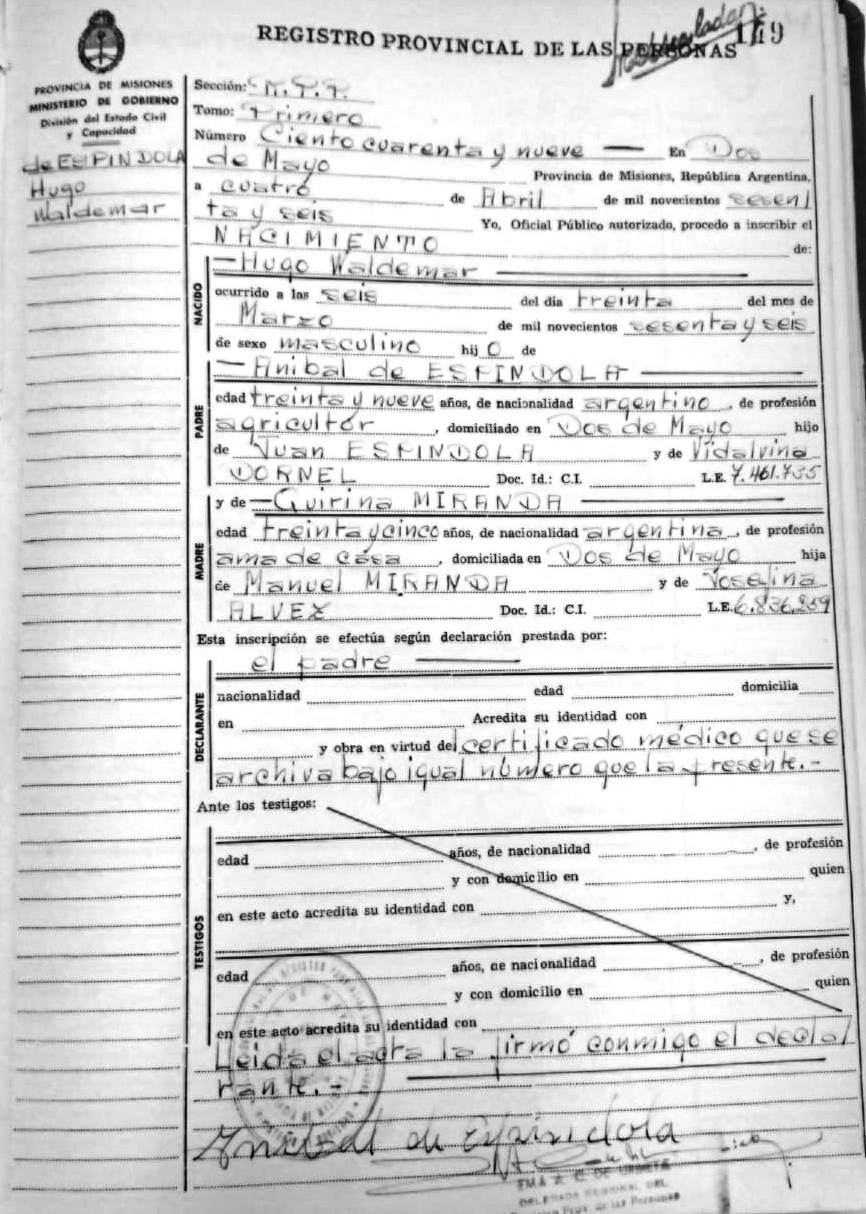 REGISTRO PROVINCIAL DE LAS PERSONAS
149
PROVINCIA DE MISIONES
MINISTERIO DE GOBIERNO
División del Estado Civil
y Capacidad
de ESPINDOLA
Hugo
Waldemar
Sección:
Tomo: Primero
Número Ciento cuarenta y nueve — En Dos
de Mayo Provincia de Misiones, República Argentina,
a cuatro de Abril de mil novecientos sesen/
ta y seis Yo, Oficial Público autorizado, procedo a inscribir el
NACIMIENTO de:
— Hugo Waldemar —
NACIDO
ocurrido a las seis del día treinta del mes de
Marzo de mil novecientos sesenta y seis
de sexo masculino hij o de
— Anibal de ESPINDOLA —
PADRE
edad treinta y nueve años, de nacionalidad argentino, de profesión
agricultor, domiciliado en Dos de Mayo hijo
de Juan ESPINDOLA y de Vidalvina
DORNEL Doc. Id.: C.I. L.E. 7.461.755
y de — Quirina MIRANDA —
MADRE
edad treinta y cinco años, de nacionalidad argentina, de profesión
ama de casa, domiciliada en Dos de Mayo hija
de Manuel MIRANDA y de Josefina
ALVEZ Doc. Id.: C.I. L.E. 6.836.259
Esta inscripción se efectúa según declaración prestada por:
el padre —
DECLARANTE
nacionalidad edad domicilia
en Acredita su identidad con
y obra en virtud del certificado médico que se
archiva bajo igual número que la presente.-
Ante los testigos:
TESTIGOS
edad años, de nacionalidad , de profesión
y con domicilio en quien
en este acto acredita su identidad con y,
edad años, de nacionalidad , de profesión
y con domicilio en quien
en este acto acredita su identidad con
Leida el acta la firmó conmigo el decla/
rante.-
Anibal de Espindola
DELEGADA REGIONAL DEL
Registro Prov. de las Personas